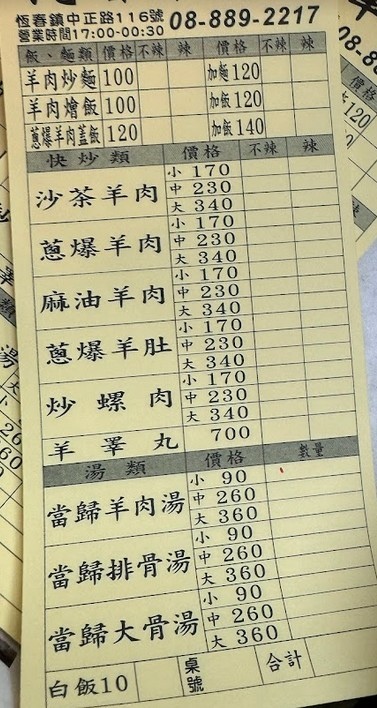 恆春鎮中正路116號 08-889-2217
營業時間17:00-00:30
飯、麵類 價格 不辣 辣 價格 不辣 辣
羊肉炒麵 100 加麵 120
羊肉燴飯 100 加飯 120
蔥爆羊肉蓋飯 120 加飯 140
快炒類 價格 不辣 辣
沙茶羊肉
小 170
中 230
大 340
蔥爆羊肉
小 170
中 230
大 340
麻油羊肉
小 170
中 230
大 340
蔥爆羊肚
小 170
中 230
大 340
炒螺肉
小 170
中 230
大 340
羊睪丸 700
湯類 價格 數量
當歸羊肉湯
小 90
中 260
大 360
當歸排骨湯
小 90
中 260
大 360
當歸大骨湯
小 90
中 260
大 360
白飯10 桌號 合計